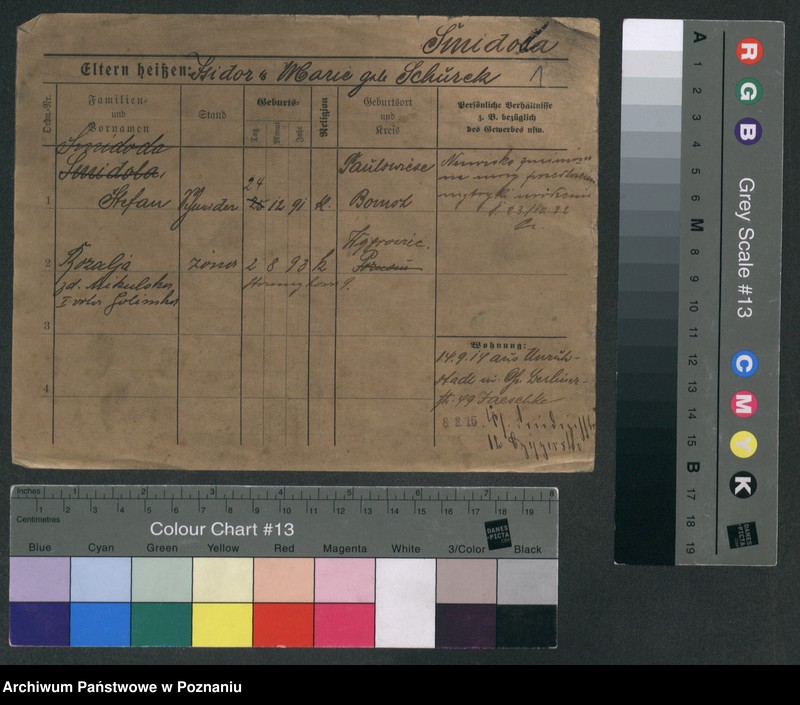 Smidoda
Eltern heißen: Isidor u Marie geb Schürek 1
Ordn.-Nr.
Familien-
und
Vornamen
Stand
Geburts-
Tag
Monat
Jahr
Religion
Geburtsort
und
Kreis
Persönliche Verhältnisse
z. B. bezüglich
des Gewerbes usw.
Smidoda
Smidola,
1 Stefan
24
25 12 91 k.
Paulswiese
Bomst
Nazwisko
na mocy
metryki
2 Rozalja żona 2 8 93 k
Posen
zd. Mikulska,
3
4
Wohnung:
14.9.14 aus Unruh-
stadt in Gr. Berliner-
str. 49 Jaeschke
8 2 15.
Inches 1 2 3 4 5 6 7 8
1 2 3 4 5 6 7 8 9 10 11 12 13 14 15 16 17 18 19
Centimetres
Colour Chart #13
DANES
PICTA
.COM
Blue Cyan Green Yellow Red Magenta White 3/Color Black
A 1 2 3 4 5 6 M 8 9 10 11 12 13 14 15 B 17 18 19
R G B
Grey Scale #13
C M Y K
DANES
PICTA
.COM
Archiwum Państwowe w Poznaniu